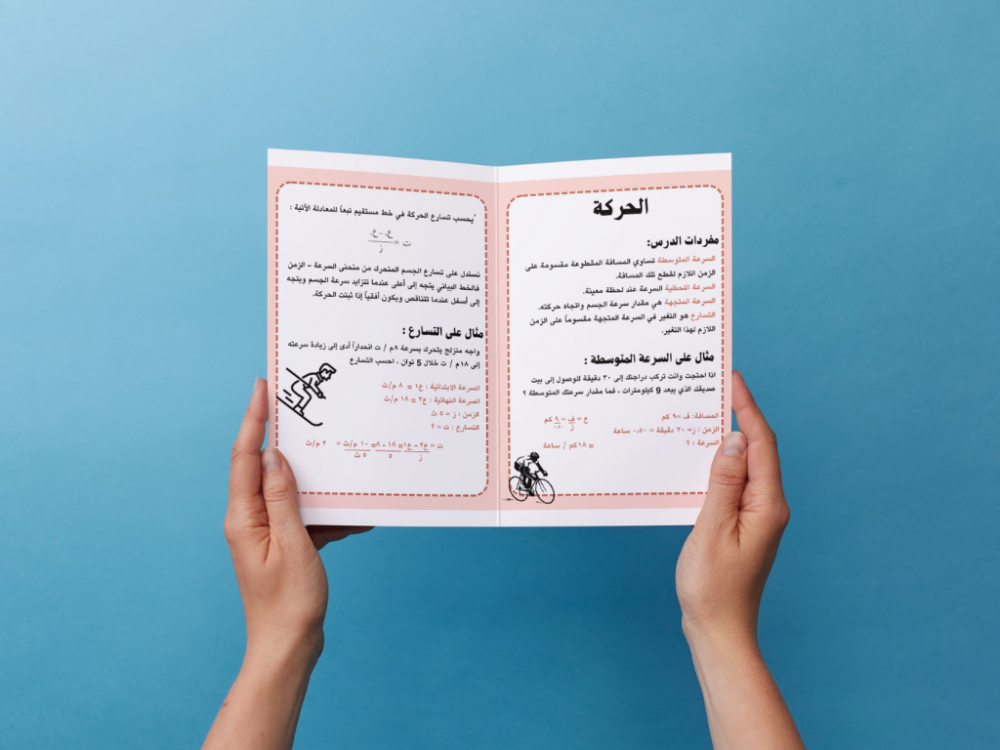 الحركة
مفردات الدرس:
السرعة المتوسطة تساوي المسافة المقطوعة مقسومة على
الزمن اللازم لقطع تلك المسافة.
السرعة اللحظية السرعة عند لحظة معينة.
السرعة المتجهة هي مقدار سرعة الجسم واتجاه حركته.
التسارع هو التغير في السرعة المتجهة مقسوماً على الزمن
اللازم لهذا التغير.
مثال على السرعة المتوسطة :
اذا احتجت وانت تركب دراجتك إلى ٣٠ دقيقة للوصول إلى بيت
صديقك الذي يبعد 9 كيلومترات ، فما مقدار سرعتك المتوسطة ؟
المسافة: ف =٩ كم
الزمن : ز= ٣٠ دقيقة = ٠،٥٠ ساعة
السرعة : ؟
ع = ف = ٩ كم
ز ٠،٥٠
= ١٨كم / ساعة
"يحسب تسارع الحركة في خط مستقيم تبعاً للمعادلة الآتية :
ت = ع٢ - ع١
ز
نستدل على تسارع الجسم المتحرك من منحنى السرعة – الزمن
فالخط البياني يتجه إلى أعلى عندما تتزايد سرعة الجسم ويتجه
إلى أسفل عندما تتناقص ويكون أفقياً إذا ثبتت الحركة.
مثال على التسارع :
واجه متزلج يتحرك بسرعة ٨م / ث انحداراً أدى إلى زيادة سرعته
إلى ١٨م / ث خلال 5 ثوان ، احسب التسارع
السرعة الابتدائية : ع١ = ٨ م/ث
السرعة النهائية : ع٢ = ١٨ م/ث
الزمن : ز = ٥ ث
التسارع : ت = ؟
ت = ع٢ - ع١ = ١٨ - ٨ = ١٠ م/ث = ٢ م/ث
ز ٥ ٥ ث